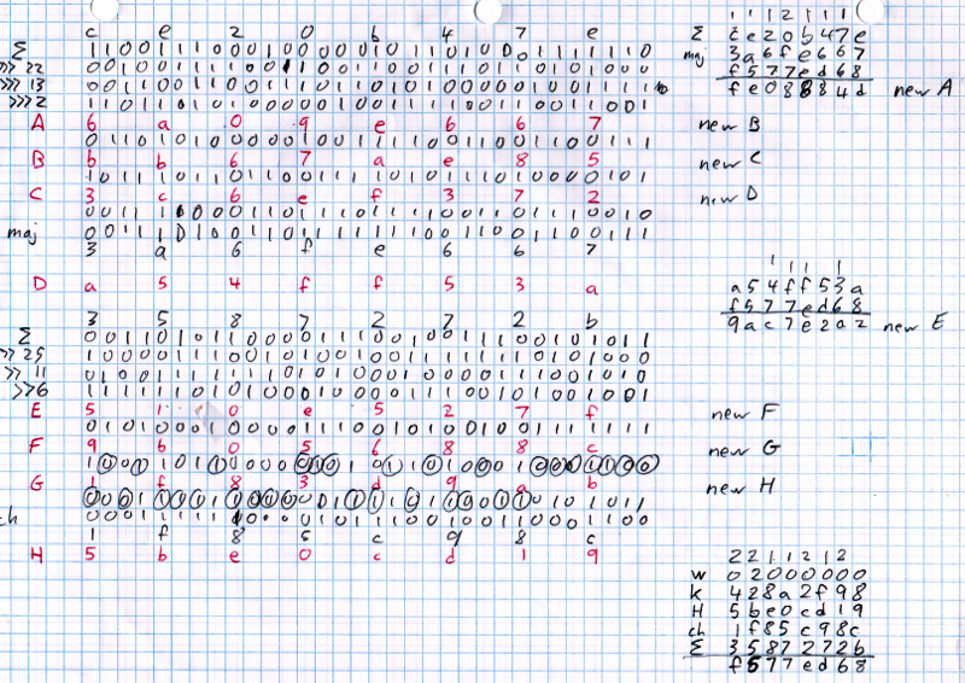 c e 2 0 b 4 7 e
Σ 1 1 0 0 1 1 1 0 0 0 1 0 0 0 0 0 1 0 1 1 0 1 0 0 0 1 1 1 1 1 1 0
>>> 22 0 0 1 0 0 1 1 1 1 0 0 1 1 0 0 1 1 0 0 1 1 1 0 1 1 0 1 0 1 0 0 0
>>> 13 0 0 1 1 0 0 1 1 0 0 1 1 1 0 1 1 0 1 0 1 0 0 0 0 0 1 0 0 1 1 1 1
>>> 2 1 1 0 1 1 0 1 0 1 0 0 0 0 0 1 0 0 1 1 1 1 0 0 1 1 0 0 1 1 0 0 1
A 6 a 0 9 e 6 6 7
0 1 1 0 1 0 1 0 0 0 0 0 1 0 0 1 1 1 1 0 0 1 1 0 0 1 1 0 0 1 1 1
B b b 6 7 a e 8 5
1 0 1 1 1 0 1 1 0 1 1 0 0 1 1 1 1 0 1 0 1 1 1 0 1 0 0 0 0 1 0 1
C 3 c 6 e f 3 7 2
0 0 1 1 1 1 0 0 0 1 1 0 1 1 1 0 1 1 1 1 0 0 1 1 0 1 1 1 0 0 1 0
maj 0 0 1 1 1 0 1 0 0 1 1 0 1 1 1 1 1 1 1 0 0 1 1 0 0 1 1 0 0 1 1 1
3 a 6 f e 6 6 7
D a 5 4 f f 5 3 a
3 5 8 7 2 7 2 b
Σ 0 0 1 1 0 1 0 1 1 0 0 0 0 1 1 1 0 0 1 0 0 1 1 1 0 0 1 0 1 0 1 1
>> 25 1 0 0 0 0 1 1 1 0 0 1 0 1 0 0 1 0 0 1 1 1 1 1 1 1 0 1 0 1 0 0 0
>> 11 0 1 0 0 1 1 1 1 1 1 1 0 1 0 1 0 0 0 1 0 0 0 0 1 1 1 0 0 1 0 1 0
>>6 1 1 1 1 1 1 0 1 0 1 0 0 0 1 0 0 0 0 1 1 1 0 0 1 0 1 0 0 1 0 0 1
E 5 1 0 e 5 2 7 f
0 1 0 1 0 0 0 1 0 0 0 0 1 1 1 0 0 1 0 1 0 0 1 0 0 1 1 1 1 1 1 1
F 9 b 0 5 6 8 8 c
1 0 0 1 1 0 1 1 0 0 0 0 0 1 0 1 0 1 1 0 1 0 0 0 1 0 0 0 1 1 0 0
G 1 f 8 3 d 9 a b
0 0 0 1 1 1 1 1 1 0 0 0 0 0 1 1 1 1 0 1 1 0 0 1 1 0 1 0 1 0 1 1
ch 0 0 0 1 1 1 1 1 1 0 0 0 0 1 0 1 1 1 0 0 1 0 0 1 1 0 0 0 1 1 0 0
1 f 8 5 c 9 8 c
H 5 b e 0 c d 1 9
1 1 1 2 1 1 1
Σ c e 2 0 b 4 7 e
maj 3 a 6 f e 6 6 7
f 5 7 7 e d 6 8
f e 0 8 8 8 4 d new A
new B
new C
new D
1 1 1 1
a 5 4 f f 5 3 a
f 5 7 7 e d 6 8
9 a c 7 e 2 a 2 new E
new F
new G
new H
2 2 1 1 2 1 2
W 0 2 0 0 0 0 0 0
K 4 2 8 a 2 f 9 8
H 5 b e 0 c d 1 9
ch 1 f 8 5 c 9 8 c
Σ 3 5 8 7 2 7 2 b
f 5 7 7 e d 6 8